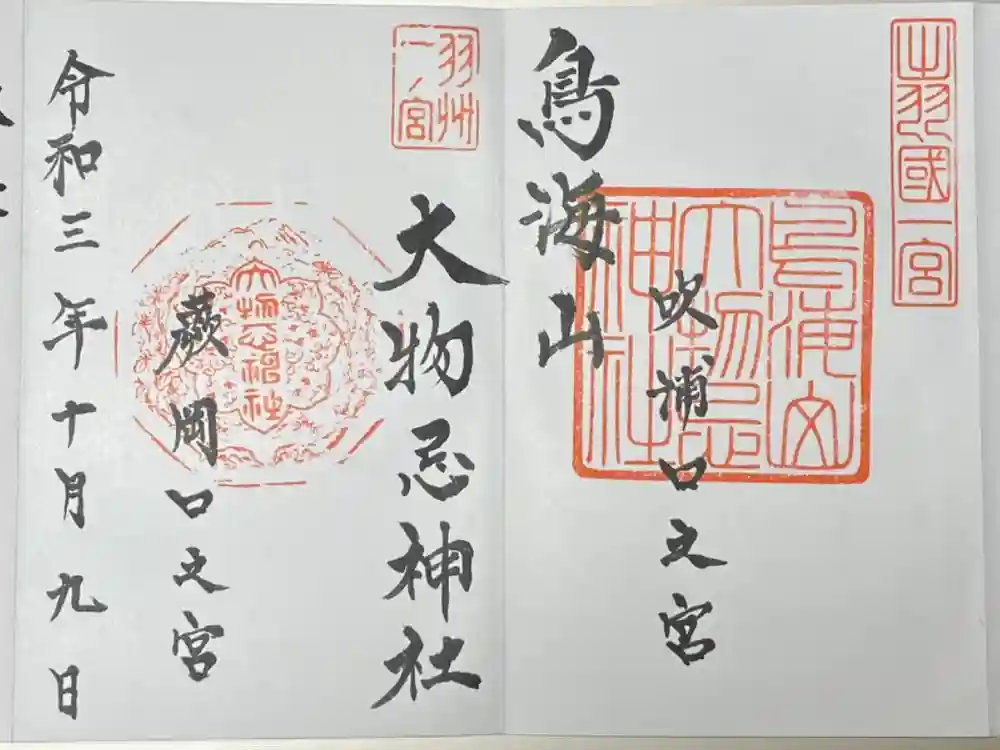 出羽國一宮
鳥海山大物忌神社
吹浦口之宮
鳥海山
羽州一ノ宮
大物忌神社
大物忌神社
蕨岡口之宮
令和三年十月九日